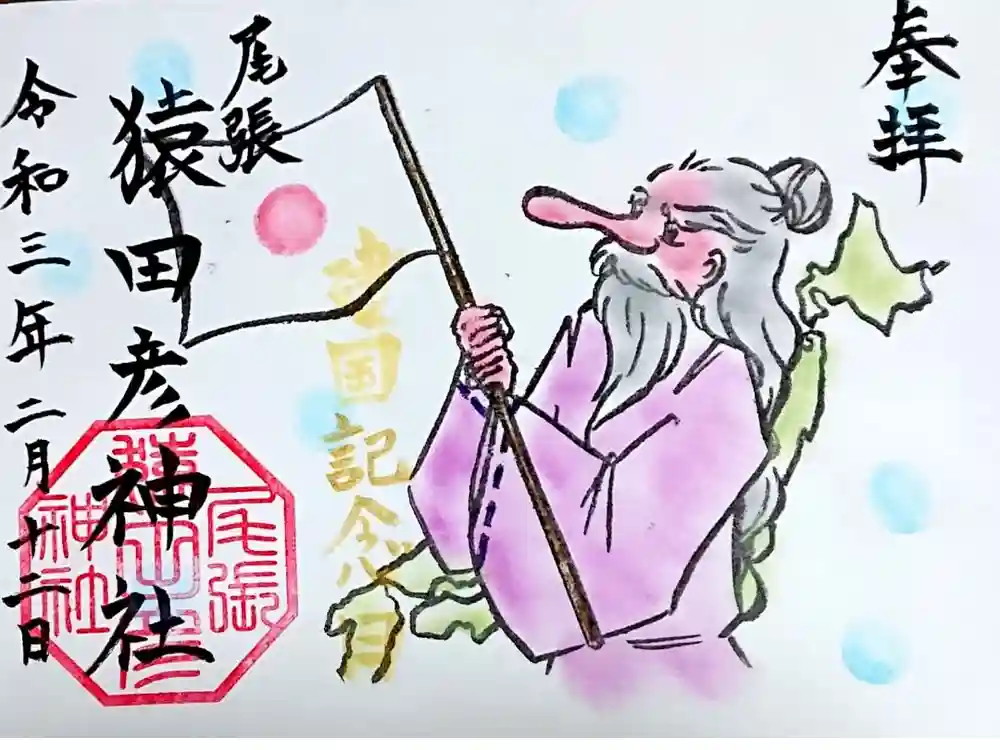 奉拝
建国記念日
尾張
猿田彦神社
尾張
猿田彦
神社
令和三年二月廿二日